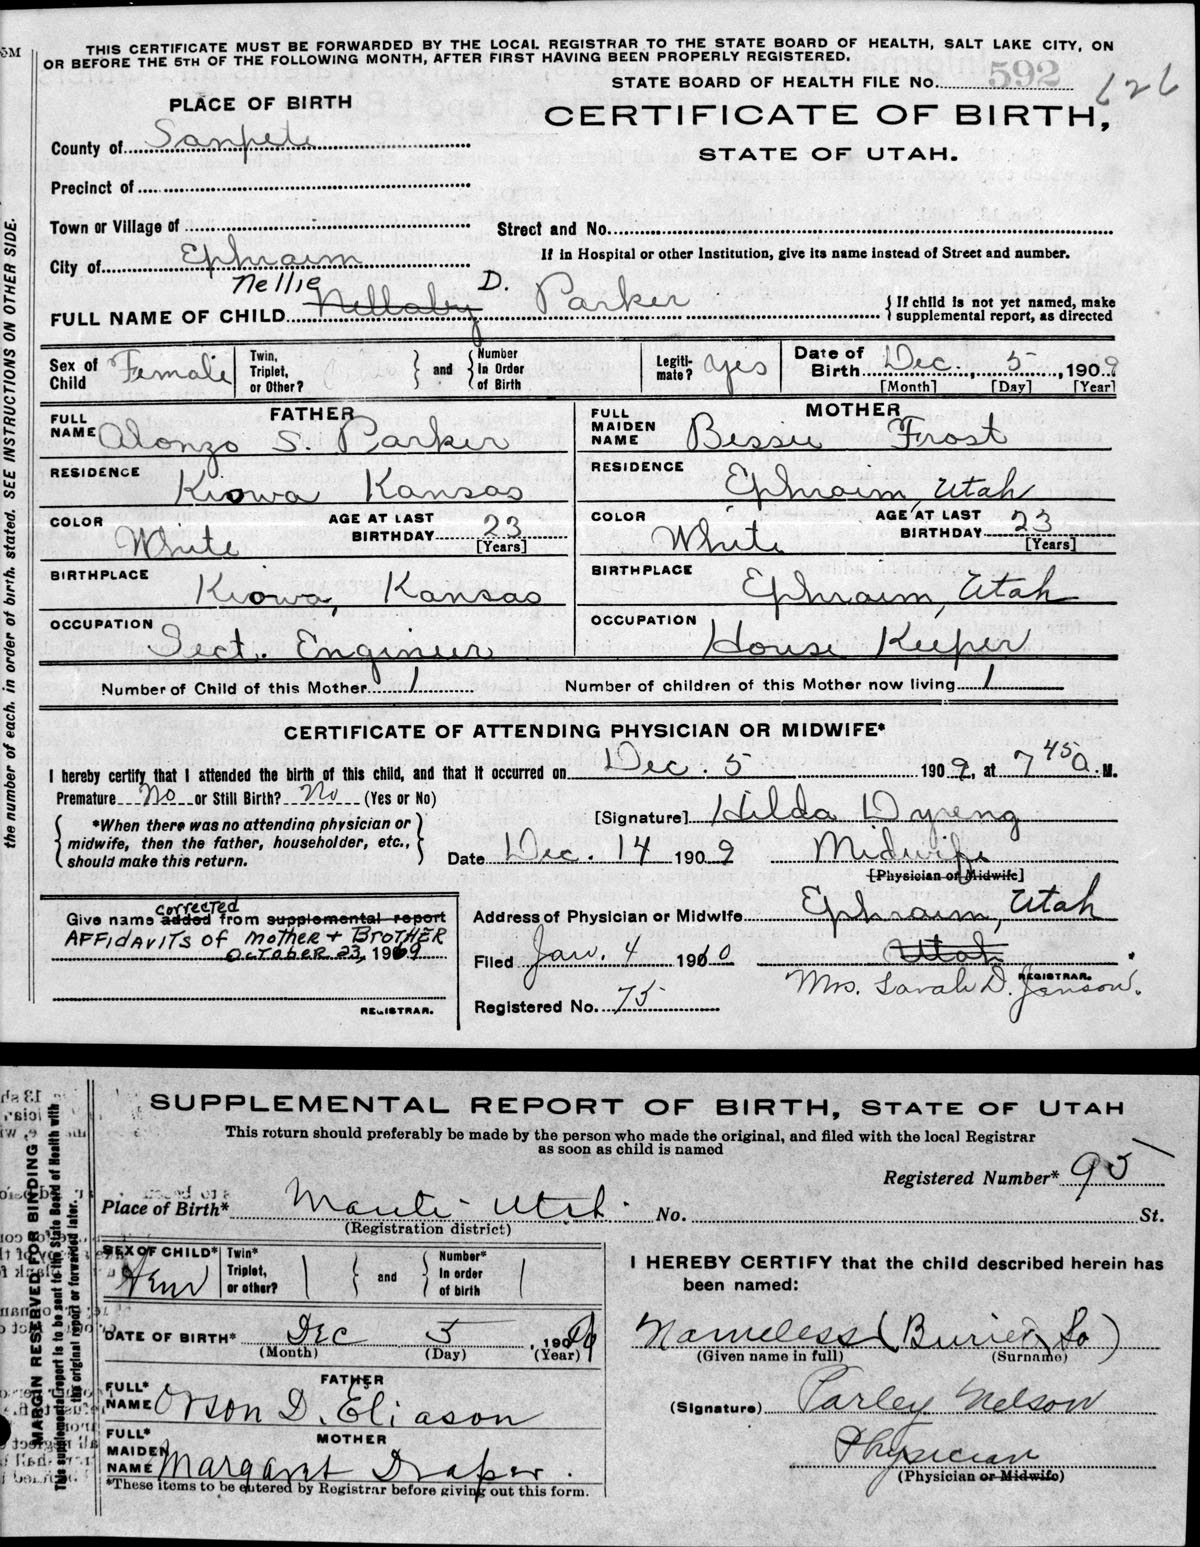 THIS CERTIFICATE MUST BE FORWARDED BY THE LOCAL REGISTRAR TO THE STATE BOARD OF HEALTH, SALT LAKE CITY, ON
OR BEFORE THE 5TH OF THE FOLLOWING MONTH, AFTER FIRST HAVING BEEN PROPERLY REGISTERED.
STATE BOARD OF HEALTH FILE No. 592 626
PLACE OF BIRTH
CERTIFICATE OF BIRTH,
STATE OF UTAH.
County of Sanpete
Precinct of
Town or Village of
Street and No.
City of Ephraim
If in Hospital or other Institution, give its name instead of Street and number.
Nellie D.
FULL NAME OF CHILD Nellaby Parker
{ If child is not yet named, make supplemental report, as directed
Sex of Child Female
Twin, Triplet, or Other? } and { Number In Order of Birth
Legitimate? yes
Date of Birth Dec. 5, 1909
[Month] [Day] [Year]
FATHER
FULL NAME Alonzo S. Parker
MOTHER
FULL MAIDEN NAME Bessie Frost
RESIDENCE Kiowa Kansas
RESIDENCE Ephraim, Utah
COLOR White AGE AT LAST BIRTHDAY 23 [Years]
COLOR White AGE AT LAST BIRTHDAY 23 [Years]
BIRTHPLACE Kiowa, Kansas
BIRTHPLACE Ephraim, Utah
OCCUPATION Sect. Engineer
OCCUPATION House Keeper
Number of Child of this Mother 1
Number of children of this Mother now living 1
CERTIFICATE OF ATTENDING PHYSICIAN OR MIDWIFE*
I hereby certify that I attended the birth of this child, and that it occurred on Dec. 5 1909, at 7 45 a. M.
Premature No or Still Birth? No (Yes or No)
[Signature] Hilda Dyreng
{ *When there was no attending physician or midwife, then the father, householder, etc., should make this return. }
Date Dec. 14 1909 Midwife
[Physician or Midwife]
corrected
Give name added from supplemental report
AFFIDAVITS OF MOTHER + BROTHER
OCTOBER 23, 1969
REGISTRAR.
Address of Physician or Midwife Ephraim, Utah
Filed Jan. 4 1910 Utah
REGISTRAR.
Mrs. Sarah D. Jenson.
Registered No. 75
the number of each, in order of birth, stated. SEE INSTRUCTIONS ON OTHER SIDE.
SUPPLEMENTAL REPORT OF BIRTH, STATE OF UTAH
This return should preferably be made by the person who made the original, and filed with the local Registrar
as soon as child is named
Registered Number* 95
Place of Birth* Manti Utah. No. St.
(Registration district)
SEX OF CHILD*
Twin* Triplet, or other? } and { Number* In order of birth
DATE OF BIRTH* Dec 5, 1909
(Month) (Day) (Year)
FATHER
FULL* NAME Orson D. Eliason
MOTHER
FULL* MAIDEN NAME Margaret Draper.
*These items to be entered by Registrar before giving out this form.
I HEREBY CERTIFY that the child described herein has
been named:
Nameless (Buried So)
(Given name in full) (Surname)
(Signature) Parley Nelson
Physician
(Physician or Midwife)
MARGIN RESERVED FOR BINDING
This supplemental report is to be sent to the State Board of Health with
the original report or forwarded later.